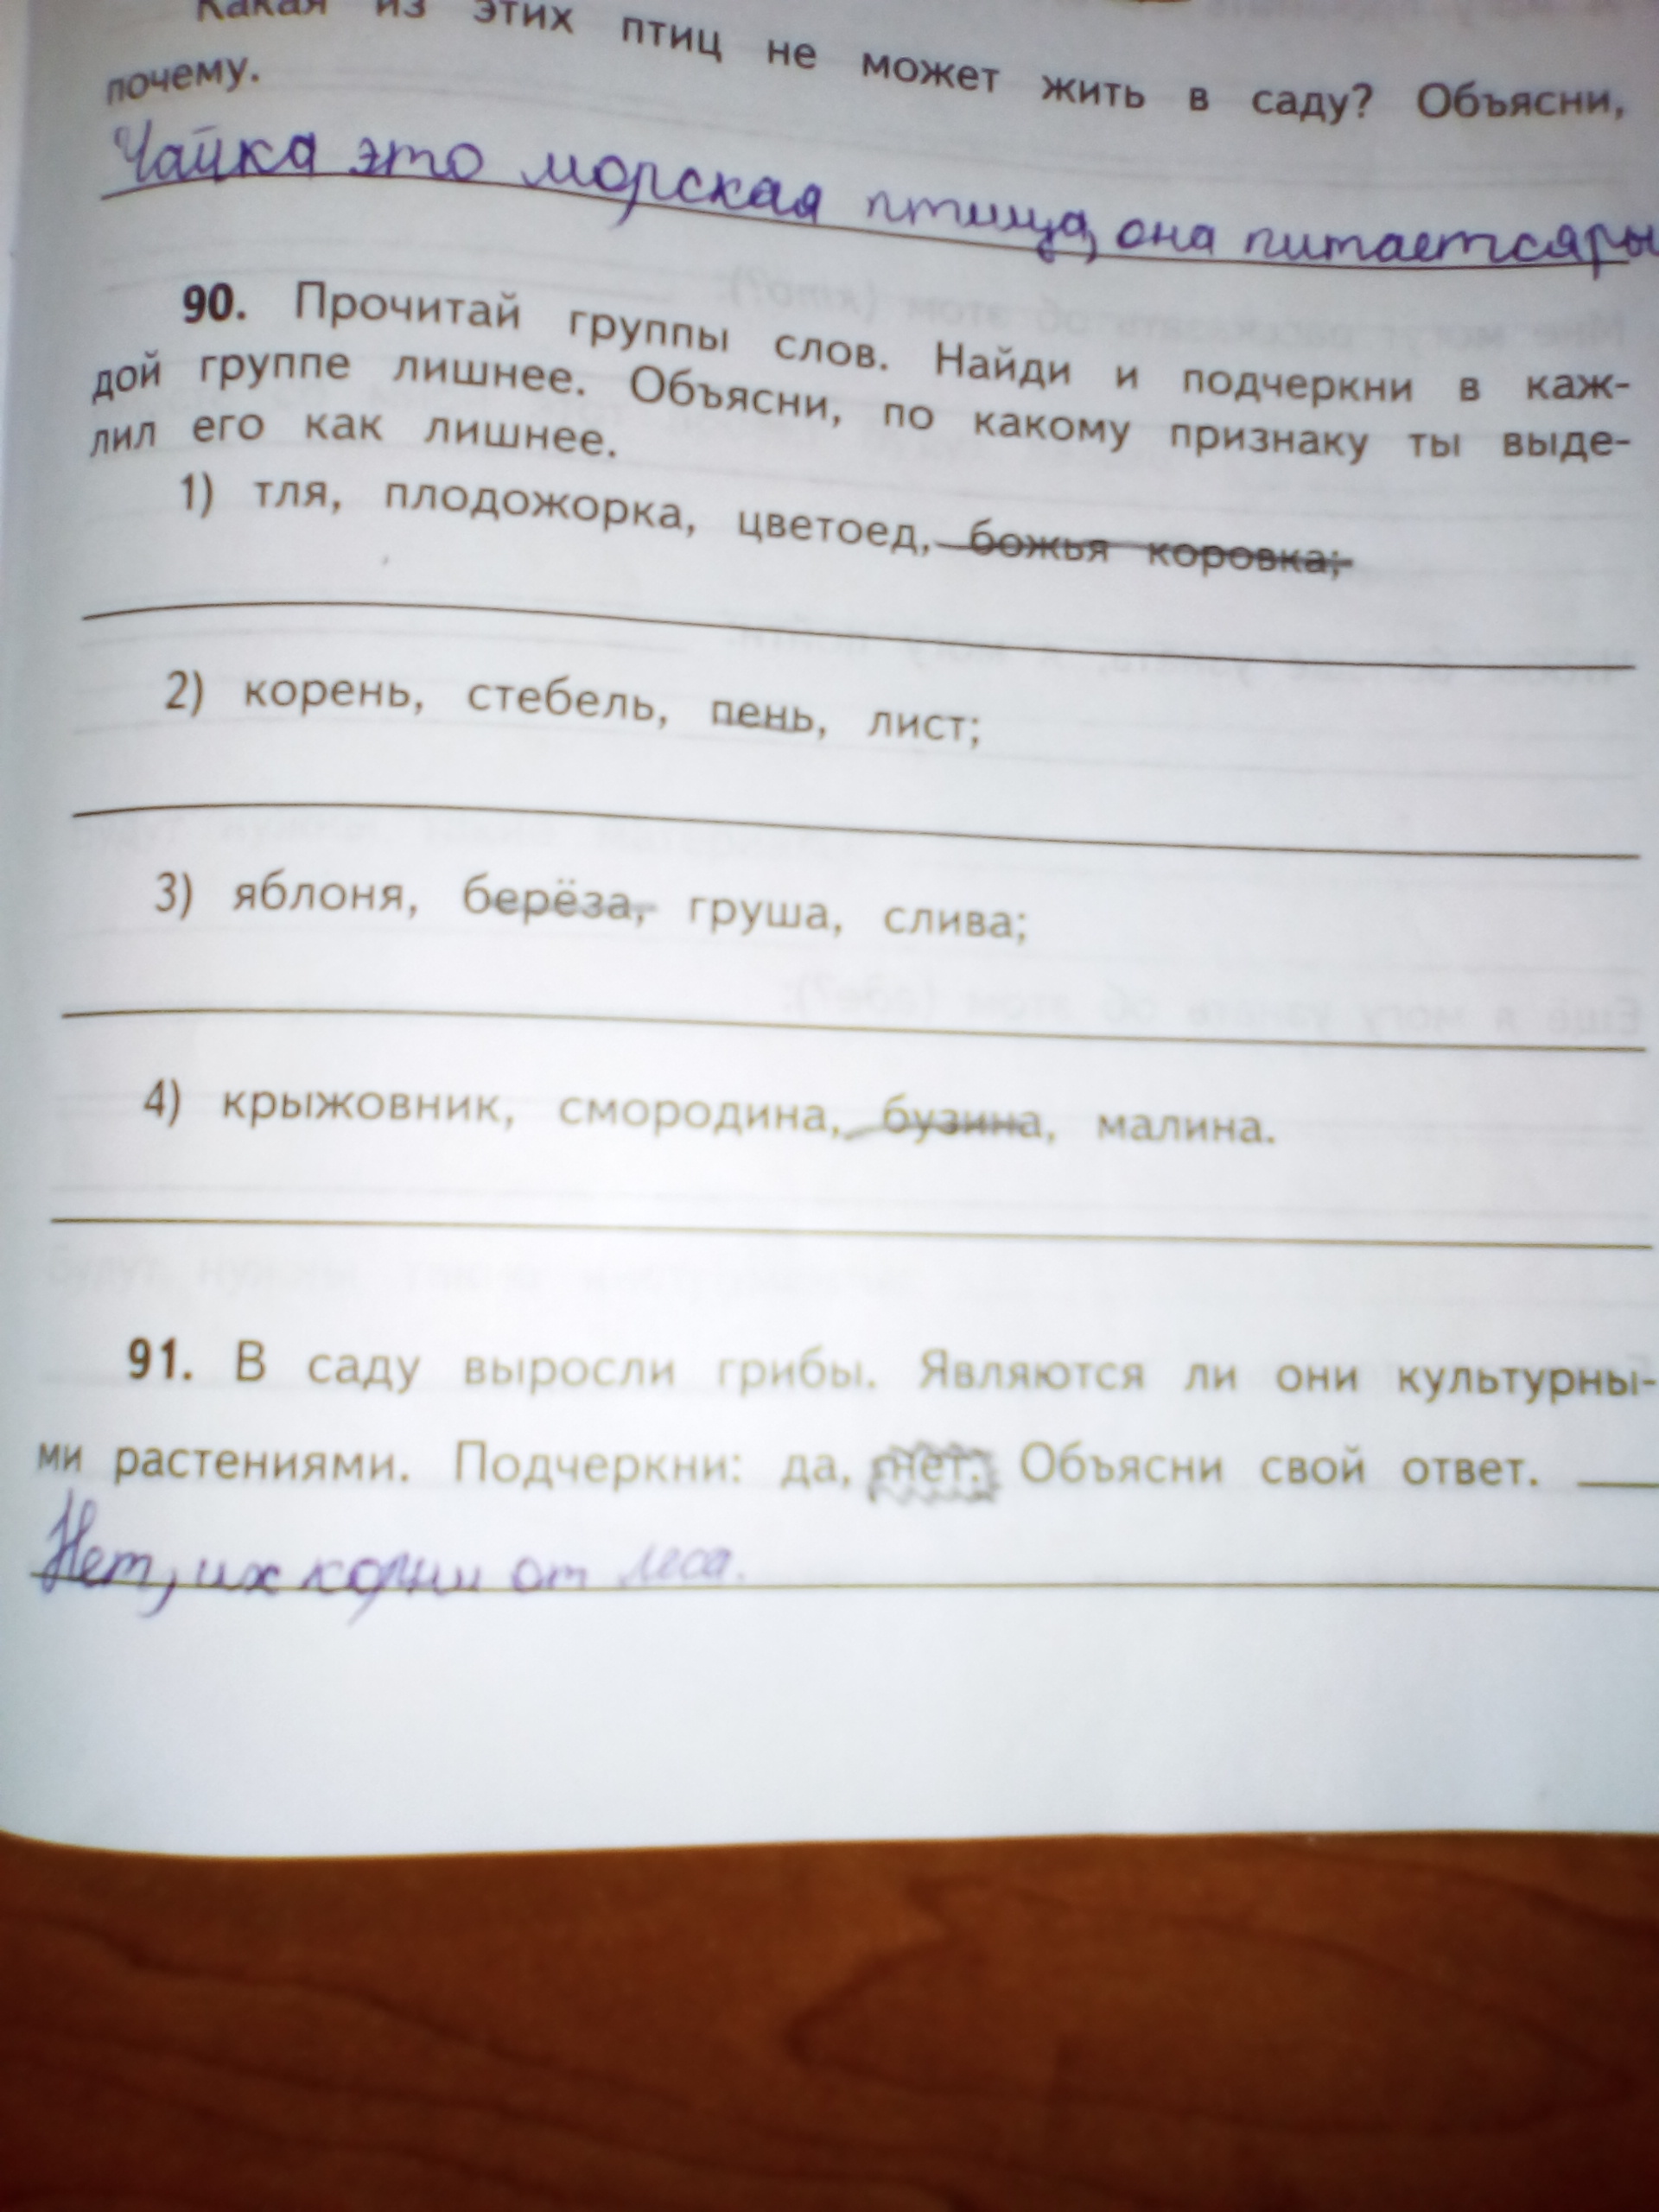 Какая из этих птиц не может жить в саду? Объясни,
почему.
Чайка это морская птица, она питается ры
90. Прочитай группы слов. Найди и подчеркни в каж-
дой группе лишнее. Объясни, по какому признаку ты выде-
лил его как лишнее.
1) тля, плодожорка, цветоед, божья коровка;
2) корень, стебель, пень, лист;
3) яблоня, берёза, груша, слива;
4) крыжовник, смородина, бузина, малина.
91. В саду выросли грибы. Являются ли они культурны-
ми растениями. Подчеркни: да, нет. Объясни свой ответ.
Нет, их корни от леса.